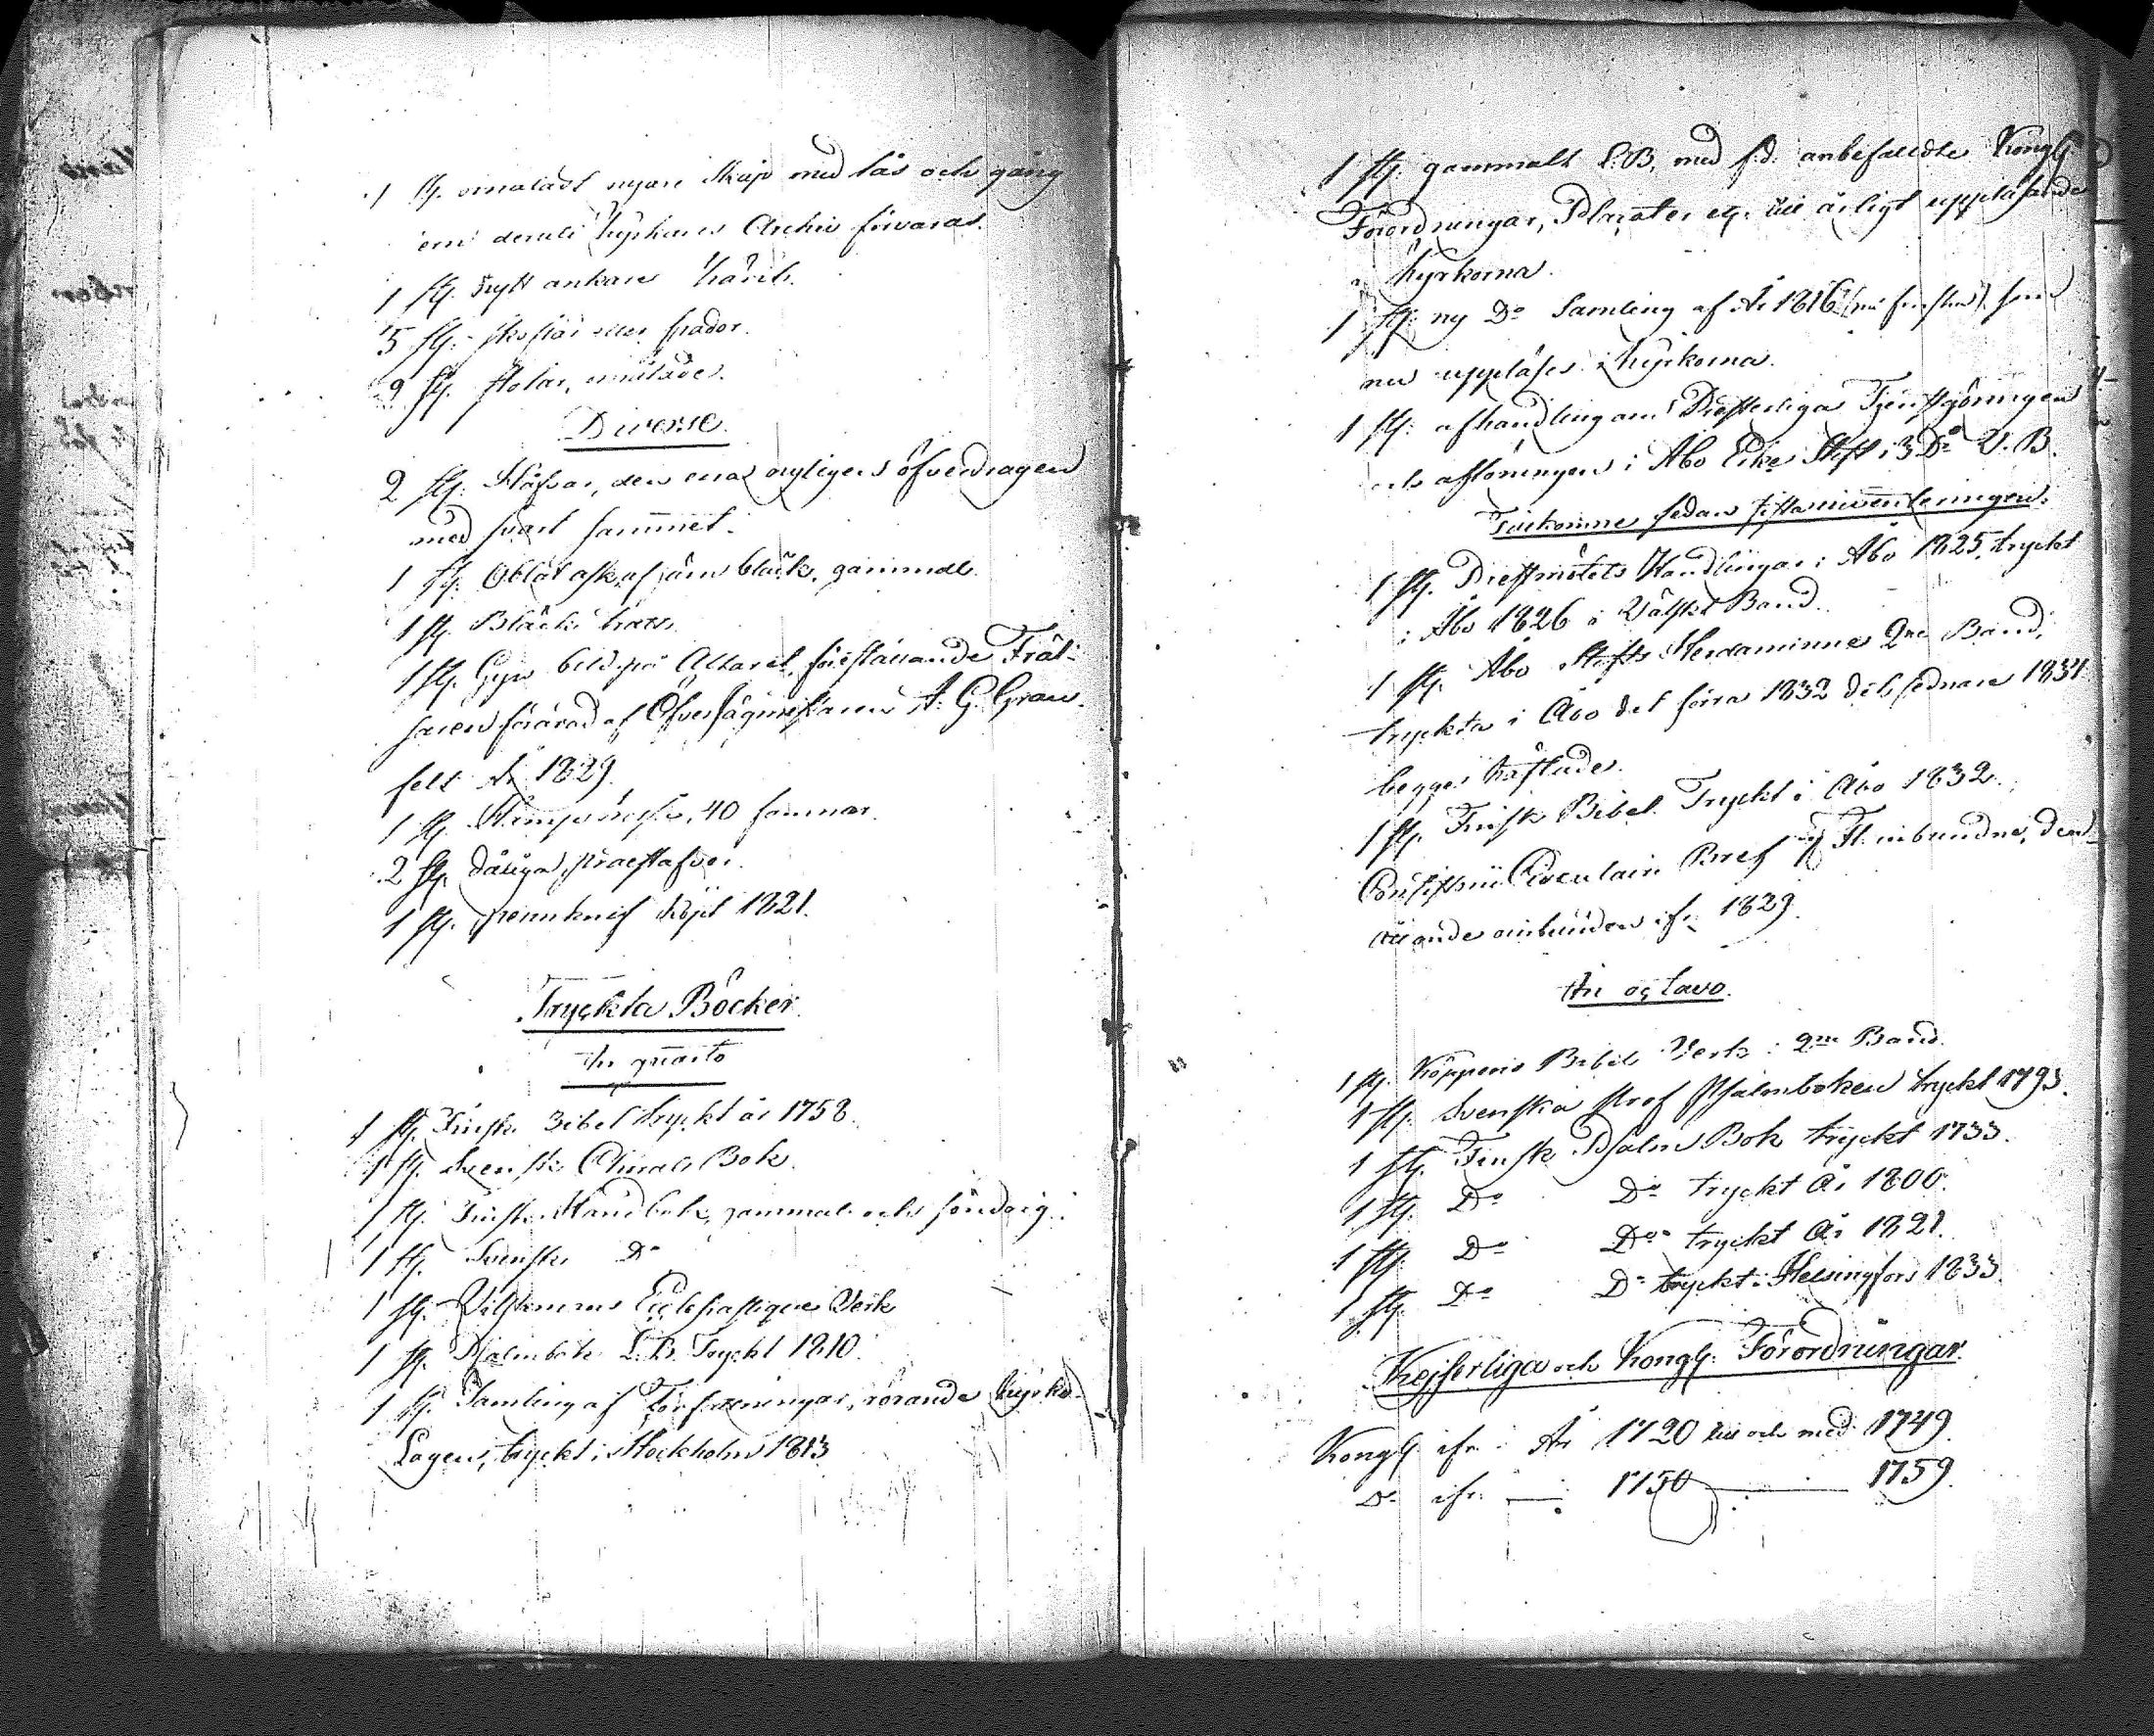 1 st. omåladt nyare skåp med lås och gång
deruti kyrkans Archiv förvaras.
1 st. nytt ankare kärill.
5 st. eller spador.
9 st. stolar, omålade.
Diverse.
2 st. Håfvar, den ena öfverdragen
med svart sammet.
1 st. Oblat ask, af järn bläck, gammal.
1 st. Bläck horn
1 st. Gips bild på Altaret, föreställande Fräl-
saren förärad af Öfverjägmästaren A. G. Gran-
felt År 1829.
1 st. 40 famnar.
2 st. dåliga
1 st. pennknif köpt 1821.
Tryckta Böcker.
In quarto
1 st. Finsk Bibel tryckt år 1758.
1 st. Svensk Choral Bok.
1 st. Finsk Handbok, gammal och söndrig.
1 st. Svensk Do
1 st. Vilskmans Ecclesiastique Verk
1 st. Psalmbok L.B. Tryckt 1810.
1 st. Samling af Författningar, rörande kyrko-
Lagen, tryckt i Stockholm 1813
1 st. gammalt L.B. med f.d. anbefalldte Kongl.
Förordningar, Placater etc. till årligt uppläsande
i kyrkorna.
1 st. ny Do Samling af År 1816 som
nu uppläses i kyrkorna.
1 st. afhandling om Presterliga Tjenstgöringen
och aflöningen i Åbo Erke Stift i 3 Do V.B.
Tillkomne sedan sista inventeringen.
1 st. Prestmötets Handlingar i Åbo 1825, tryckt
i Åbo 1826 i Välskt Band.
1 st. Åbo Stifts Herdaminne 2ne Band,
tryckta i Åbo det förra 1832 det sednare 1834
begge häftade.
1 st. Finsk Bibel. Tryckt i Åbo 1832.
Consistorii Circulair Bref inbundne, den
oinbunden ifr. 1829.
In octavo.
1 st. Köppens Bibel Verk i 2ne Band.
1 st. Svenska prof Psalmboken tryckt 1793.
1 st. Finsk Psalm Bok tryckt 1733.
1 st. Do Do tryckt År 1800.
1 st. Do Do tryckt År 1821.
1 st. Do Do tryckt i Helsingfors 1833.
Kejserliga och Kongl. Förordningar.
Kongl. ifr. År 1720 till och med 1749.
Do ifr. — 1750 — 1759.